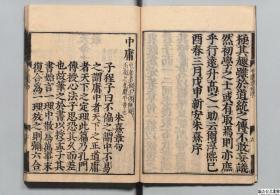 極其趣雖於道統之傳不敢妄議
然初學之士或有取焉則亦庶
乎行遠升高之一助云爾淳熙己
酉春三月戊申新安朱熹序
中庸
朱熹章句
子程子曰不偏之謂中不易
之謂庸中者天下之正道庸
者天下之定理此篇乃孔門
傳授心法子思恐其久而差
也故筆之於書以授孟子其
書始言一理中散為萬事末
復合為一理放之則彌六合